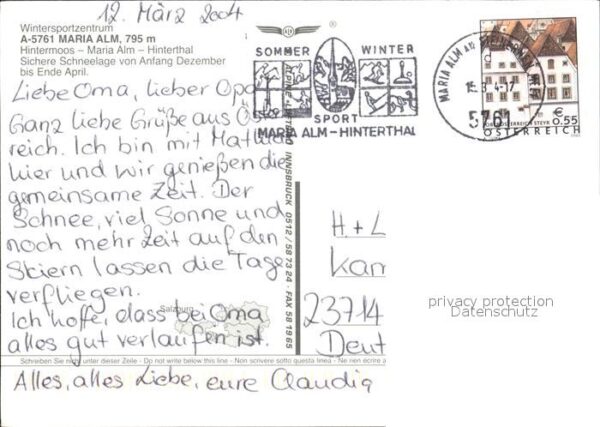 12. März 2004
Wintersportzentrum
A-5761 MARIA ALM, 795 m
Hintermoos - Maria Alm - Hinterthal
Sichere Schneelage von Anfang Dezember
bis Ende April.
Liebe Oma, lieber Opa
Ganz liebe Grüße aus Ö
reich. Ich bin mit
hier und wir genießen die
gemeinsame Zeit. Der
Schnee, viel Sonne und
noch mehr Zeit auf den
Skiern lassen die Tage
verfliegen.
Ich hoffe, dass bei Oma
alles gut verlaufen ist.
Salzburg
Schreiben Sie nicht unter dieser Zeile - Do not write below this line - Non scrivere sotto questa linea - Ne rien écrire a
Alles, alles Liebe, eure Claudia
INNSBRUCK 0512 / 58 73 24 · FAX 58 19 65
SOMMER WINTER
SPORT
MARIA ALM - HINTERTHAL
MARIA ALM
5761
€ 0.55
ÖSTERREICH
H. + L
Kam
23714
Deut
privacy protection
Datenschutz